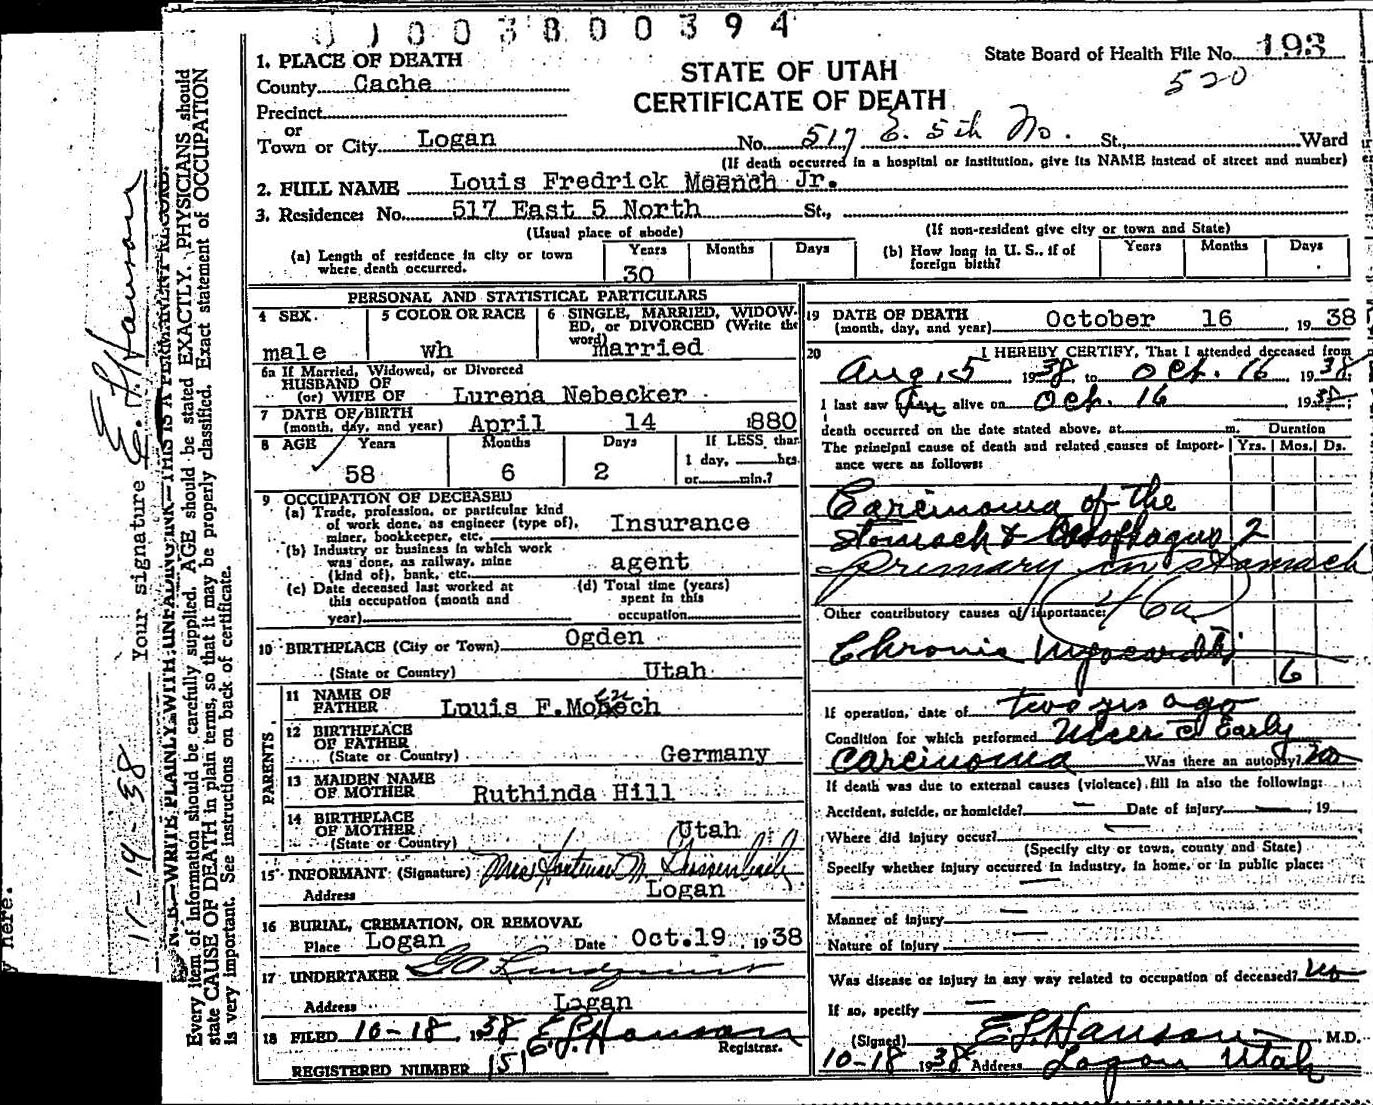 01003800394
State Board of Health File No. 193
520
STATE OF UTAH
CERTIFICATE OF DEATH
1. PLACE OF DEATH
County Cache
Precinct
or
Town or City Logan No. 517 E. 5th No. St., Ward
(If death occurred in a hospital or institution, give its NAME instead of street and number)
2. FULL NAME Louis Fredrick Moench Jr.
3. Residence: No. 517 East 5 North St.,
(Usual place of abode) (If non-resident give city or town and State)
(a) Length of residence in city or town where death occurred. Years 30 Months Days
(b) How long in U. S., if of foreign birth? Years Months Days
PERSONAL AND STATISTICAL PARTICULARS
4 SEX male
5 COLOR OR RACE wh
6 SINGLE, MARRIED, WIDOWED, or DIVORCED (Write the word) married
6a If Married, Widowed, or Divorced
HUSBAND OF
(or) WIFE OF Lurena Nebecker
7 DATE OF BIRTH
(month, day, and year) April 14 1880
8 AGE Years 58 Months 6 Days 2 If LESS than 1 day, hrs. or min.?
9 OCCUPATION OF DECEASED
(a) Trade, profession, or particular kind
of work done, as engineer (type of),
miner, bookkeeper, etc. Insurance
(b) Industry or business in which work
was done, as railway, mine
(kind of), bank, etc. agent
(c) Date deceased last worked at
this occupation (month and
year)
(d) Total time (years)
spent in this
occupation
10 BIRTHPLACE (City or Town) Ogden
(State or Country) Utah
PARENTS
11 NAME OF
FATHER Louis F. Moench
12 BIRTHPLACE
OF FATHER
(State or Country) Germany
13 MAIDEN NAME
OF MOTHER Ruthinda Hill
14 BIRTHPLACE
OF MOTHER
(State or Country) Utah
15 INFORMANT (Signature) Mrs Hortense M.
Address Logan
16 BURIAL, CREMATION, OR REMOVAL
Place Logan Date Oct.19 1938
17 UNDERTAKER
Address Logan
18 FILED 10-18, 1938 E.L. Hanson
Registrar.
REGISTERED NUMBER 151
19 DATE OF DEATH
(month, day, and year) October 16, 1938
20 I HEREBY CERTIFY, That I attended deceased from
Aug. 5 1938, to Oct. 16 1938,
I last saw him alive on Oct. 16 1938,
death occurred on the date stated above, at m. Duration
The principal cause of death and related causes of importance were as follows: Yrs. Mos. Ds.
Carcinoma of the
Stomach & Oesophagus 2
Primary in stomach
Other contributory causes of importance: (46a)
Chronic Myocarditis
6
If operation, date of two yrs ago
Condition for which performed Ulcer c̄ Early
Carcinoma Was there an autopsy? no
If death was due to external causes (violence) fill in also the following:
Accident, suicide, or homicide? — Date of injury —, 19
Where did injury occur? —
(Specify city or town, county and State)
Specify whether injury occurred in industry, in home, or in public place:
—
Manner of injury —
Nature of injury —
Was disease or injury in any way related to occupation of deceased? no
If so, specify —
(Signed) E.L. Hanson, M.D.
10-18 1938 Address Logan Utah
N. B.—WRITE PLAINLY, WITH UNFADING INK—THIS IS A PERMANENT RECORD.
Every item of information should be carefully supplied. AGE should be stated EXACTLY. PHYSICIANS should
state CAUSE OF DEATH in plain terms, so that it may be properly classified. Exact statement of OCCUPATION
is very important. See instructions on back of certificate.
11-19-38 Your signature E. L. Hanson
here.